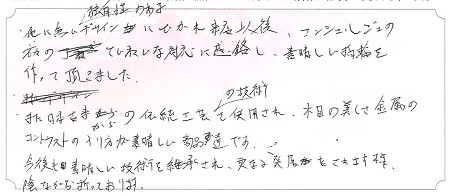 独自性のある
他に無いデザインにひかれ来店以後、コンシェルジュの
方のていねいな対応に感銘し、素晴しい指輪を
作って頂きました。
の技術
また日本古来からの伝統工芸で使用され、木目の美しさ金属の
コントラストの が素晴しい です。
今後も素晴しい技術を継承され、更なる発展をされます様、
陰ながら祈っております。